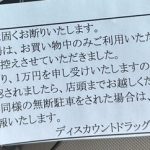 固くお断りいたします。
場は、お買い物中のみご利用いただ
控えさせていただきました。
り、1万円を申し受けいたしますの
されましたら、店頭までお越しくだ
同様の無断駐車をされた場合は、
報いたします。
ディスカウントドラッグ